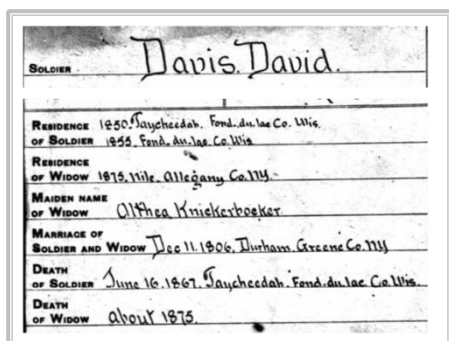 SOLDIER Davis, David.
RESIDENCE 1850, Taycheedah, Fond. du. lac Co. Wis.
OF SOLDIER 1855, Fond. du. lac. Co. Wis
RESIDENCE
OF WIDOW 1875, Nile, Allegany Co. NY.
MAIDEN NAME
OF WIDOW Althea Knickerbocker.
MARRIAGE OF
SOLDIER AND WIDOW Dec 11. 1806, Durham, Greene Co. NY
DEATH
OF SOLDIER June 16, 1867, Taycheedah, Fond. du. lac Co. Wis.
DEATH
OF WIDOW about 1875.